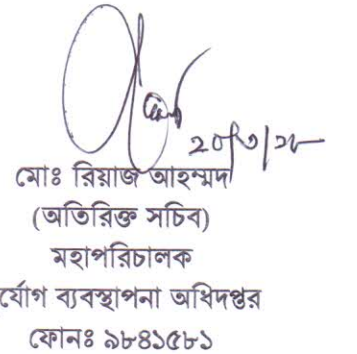 ২০/৩/১৮
মোঃ রিয়াজ আহম্মদ
(অতিরিক্ত সচিব)
মহাপরিচালক
র্যোগ ব্যবস্থাপনা অধিদপ্তর
ফোনঃ ৯৮৪১৫৮১